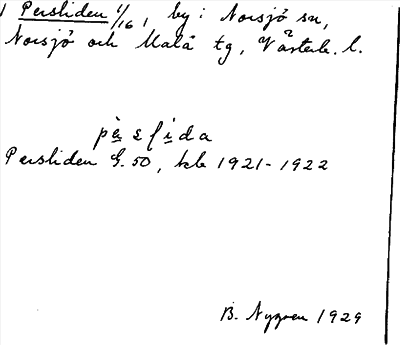 Persliden 1/16, by i Norsjö sn,
Norsjö och Malå tg, Västerb. l.
pæslida
Persliden G.50, kb 1921-1922
B. Nygren 1929